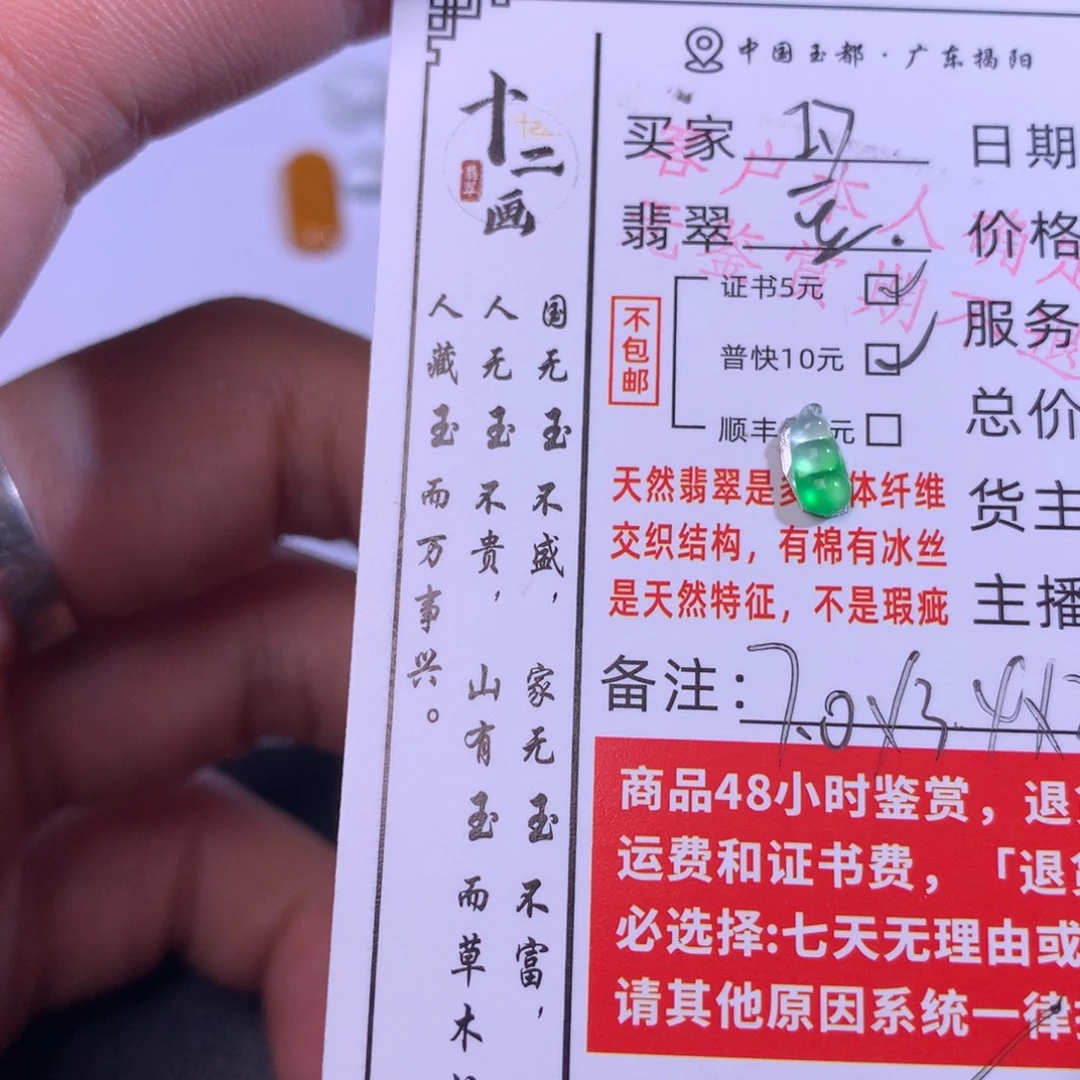 中国玉都·广东揭阳
十二画
翡翠
国无玉不盛，家无玉不富，
人无玉不贵，山有玉而草木
人藏玉而万事兴。
买家
日期
翡翠
价格
不包邮
证书5元
普快10元
顺丰 元
服务
总价
货主
主播
天然翡翠是 体纤维
交织结构，有棉有冰丝
是天然特征，不是瑕疵
备注：7.0×3.4×
商品48小时鉴赏，退
运费和证书费，「退
必选择:七天无理由或
请其他原因系统一律